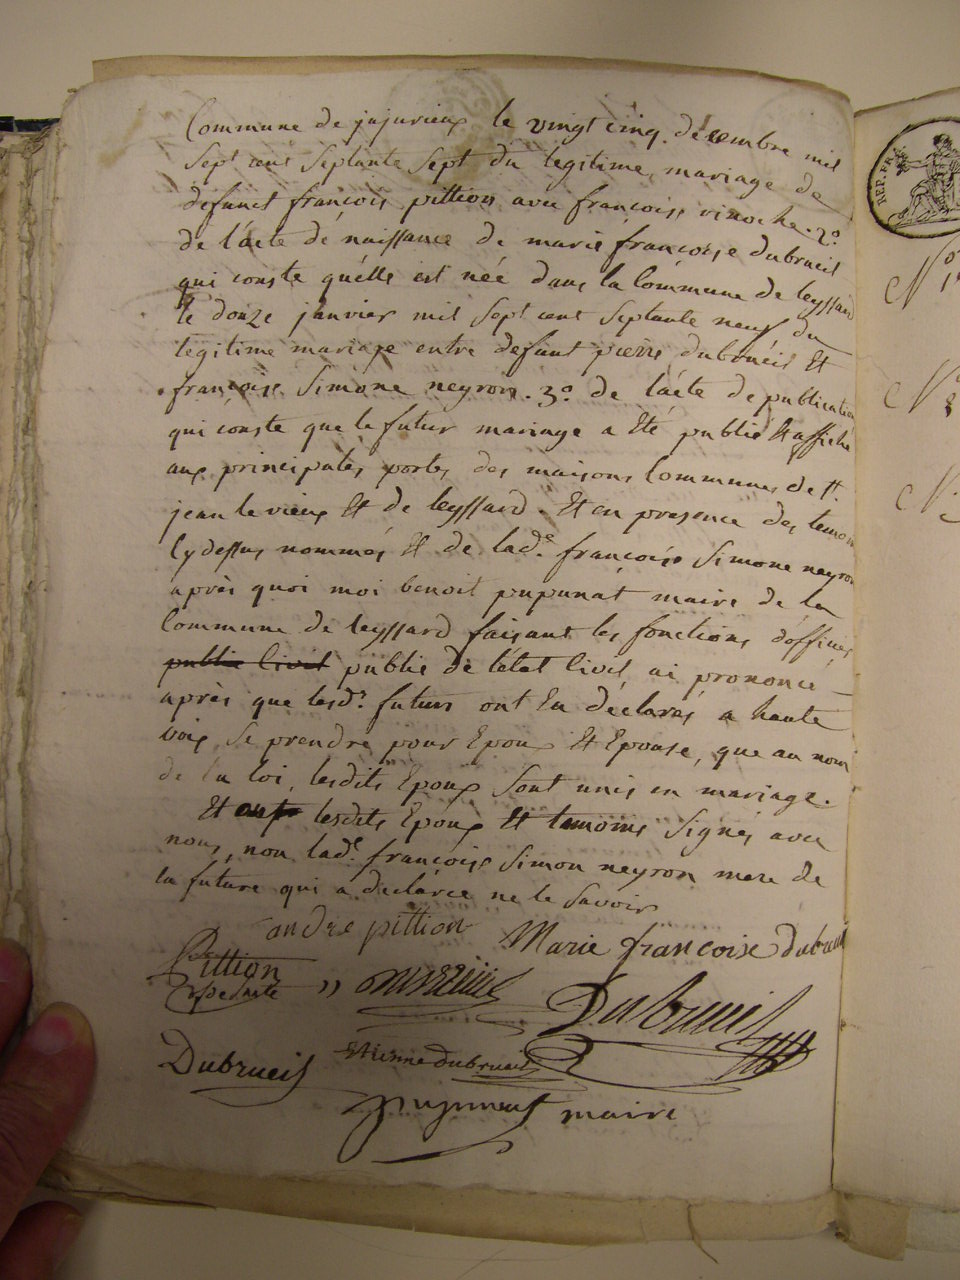 Commune de jujurieux le vingt cinq décembre mil
sept cent septante sept du legitime mariage de
defunct françois pittion avec françoise vinoche. 2°.
de l'acte de naissance de marie françoise dubrueil
qui conste qu'élle est née dans la commune de leyssard
le douze janvier mil sept cent septante neuf du
legitime mariage entre defunt pierre dubrueil Et
françoise Simone neyron. 3°. de l'acte de publication
qui conste que le futur mariage a Eté publié Et affiché
aux principales portes des maisons Communes de St.
jean le vieux Et de leyssard. Et en presence des temoins
Cy dessus nommés Et de lade. françoise Simone neyron
après quoi moi benoit pupunat maire de la
Commune de leyssard faisant les fonctions d'officier
public Civil public de l'état Civil, ai prononcé
après que lesd. futurs ont Eu déclarés a haute
voix Se prendre pour Epoux Et Epouse, que au nom
de la loi, lesdits Epoux sont unis en mariage.
Et lesdits Epoux Et temoins signés avec
nous, non lade. françoise Simon neyron mere de
la future qui a déclarée ne le savoir
andre pittion Marie françoise dubrueil
Pittion
Dubrueil
Dubrueil Etienne dubrueil
pupunat maire
REP. FRA.
N°
N°
N°